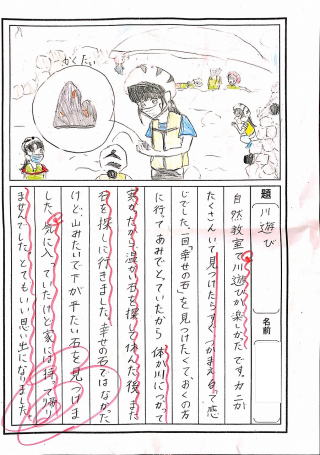 かくたい
題 川遊び
名前
自然教室で川遊びが楽しかったです。カニが
たくさんいて見つけたらすぐつかまえるって感
じでした。一回「幸せの石」を見つけたくて、おくの方
に行ってあみでとっていたから体が川につかって
寒かったから温かい石を探して休んだ後、また
石を探しに行きました。幸せの石ではなかった
けど、山みたいで下が平たい石を見つけま
した。気に入っていたけど家には持って帰り
ませんでした。とてもいい思い出になりました。